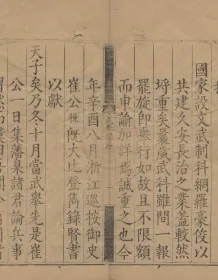 國家設文武制科網羅豪俊以
共建久安長治之業蓋較然
埒重矣曩歲武科雖間一報
罷旋即舉行如故且不限額
而申諭加詳焉誠重之也今
年辛酉八月浙江巡按御史
崔公既大比登雋錄賢書
以獻
天子矣乃冬十月當武舉先是崔
公一日集藩臬諸君論兵事